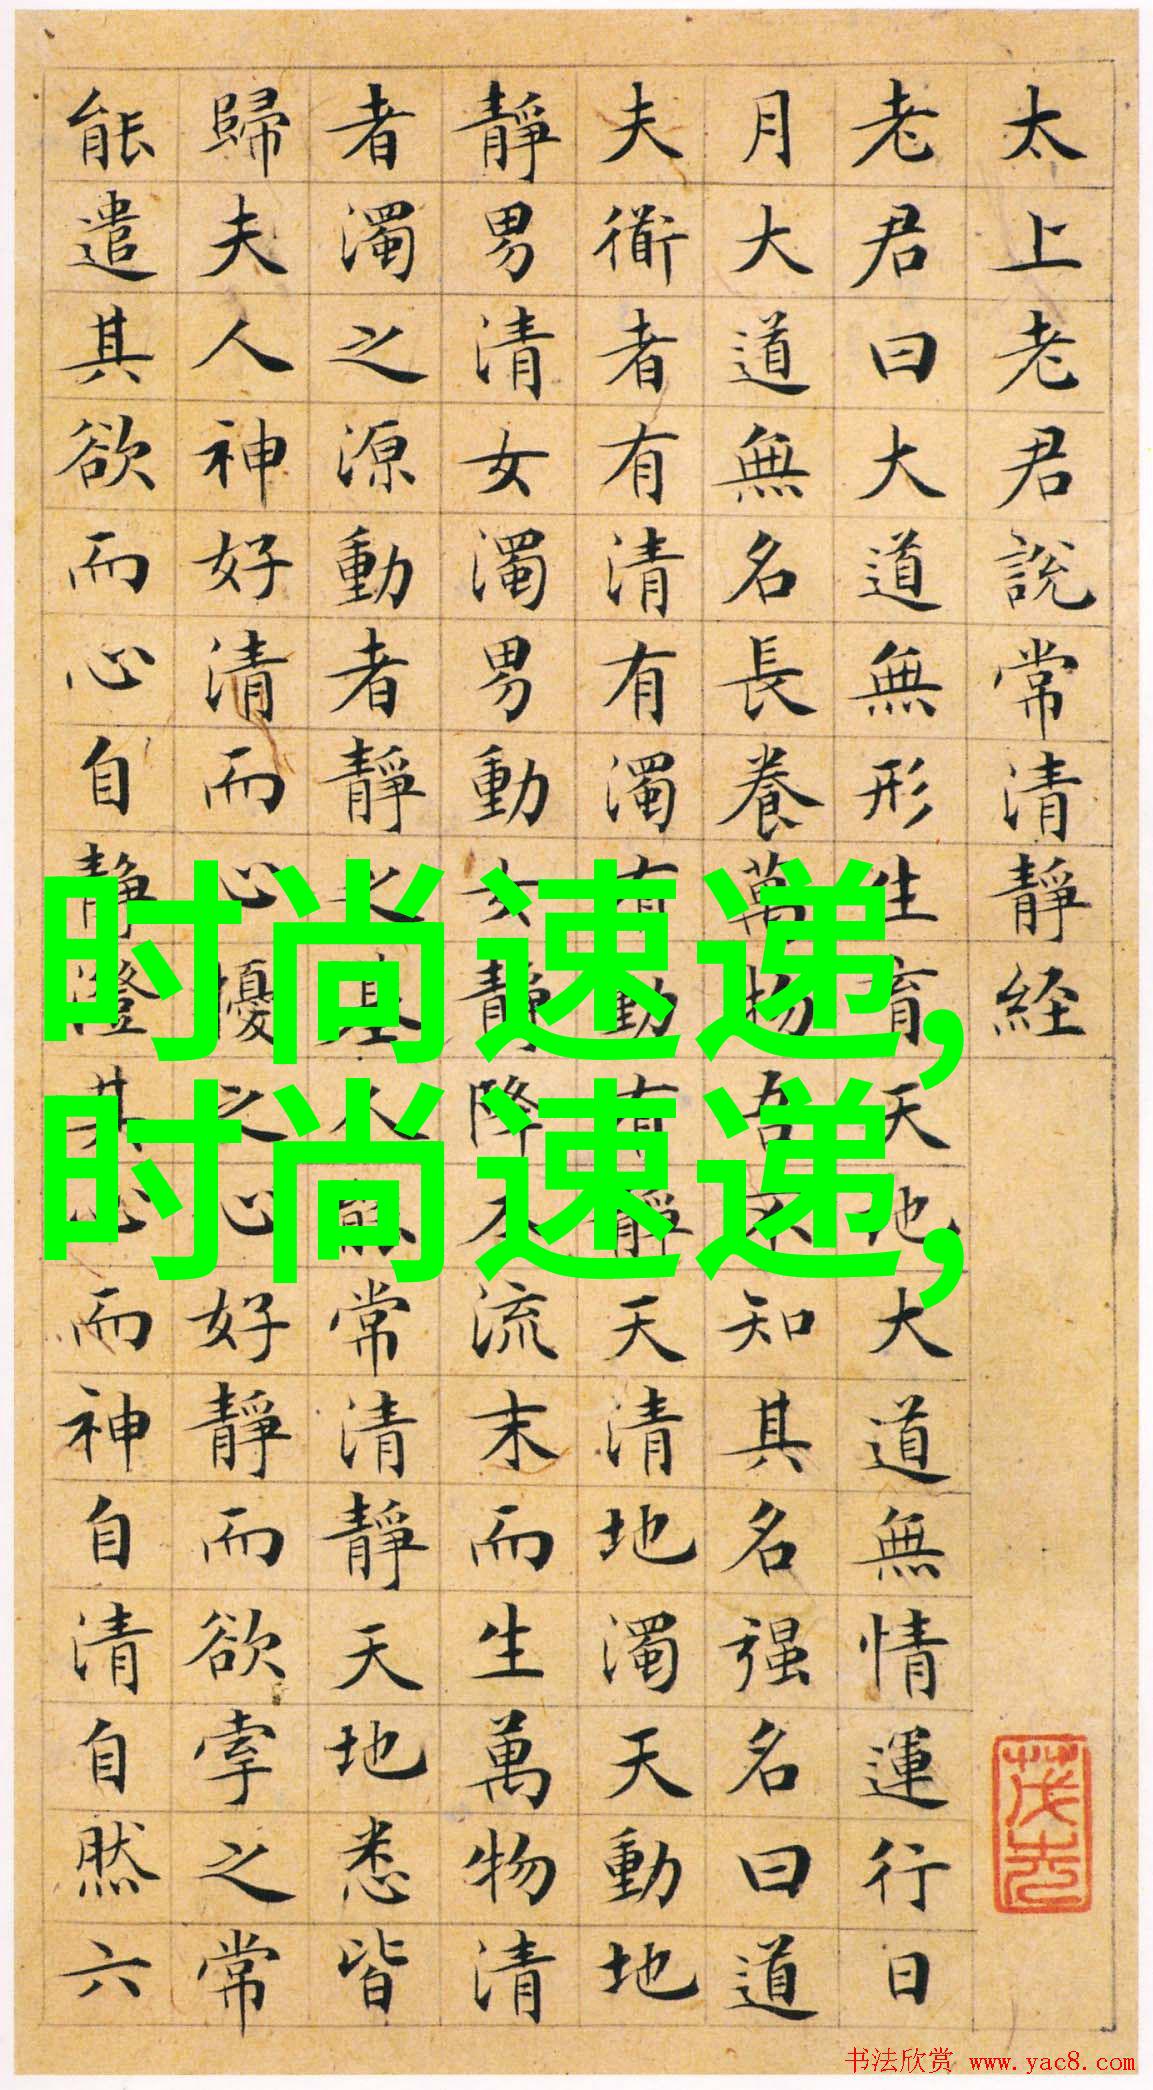 太上老君說常清靜経
老君曰大道無形生育天地大道無情運行日
月大道無名長養萬物吾不知其名强名曰道
夫衜者有清有濁有動有靜天清地濁天動地
靜男清女濁男動女靜降本流末而生萬物清
者濁之源動者靜之基人能常清靜天地悉皆
歸夫人神好清而心擾之心好靜而欲牽之常
能遣其欲而心自靜澄其心而神自清自然六
时尚速递,
时尚速递,
书法欣赏 www.yac8.com